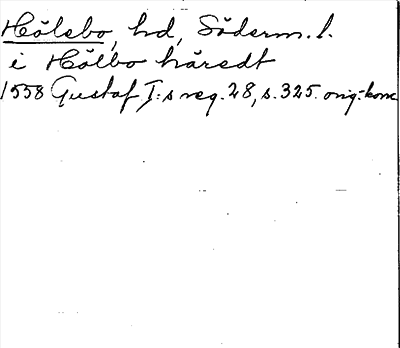 Hölebo, hd, Söderm. l.
i Hölbo häredt
1558 Gustaf I:s reg. 28, s. 325. orig.-konc